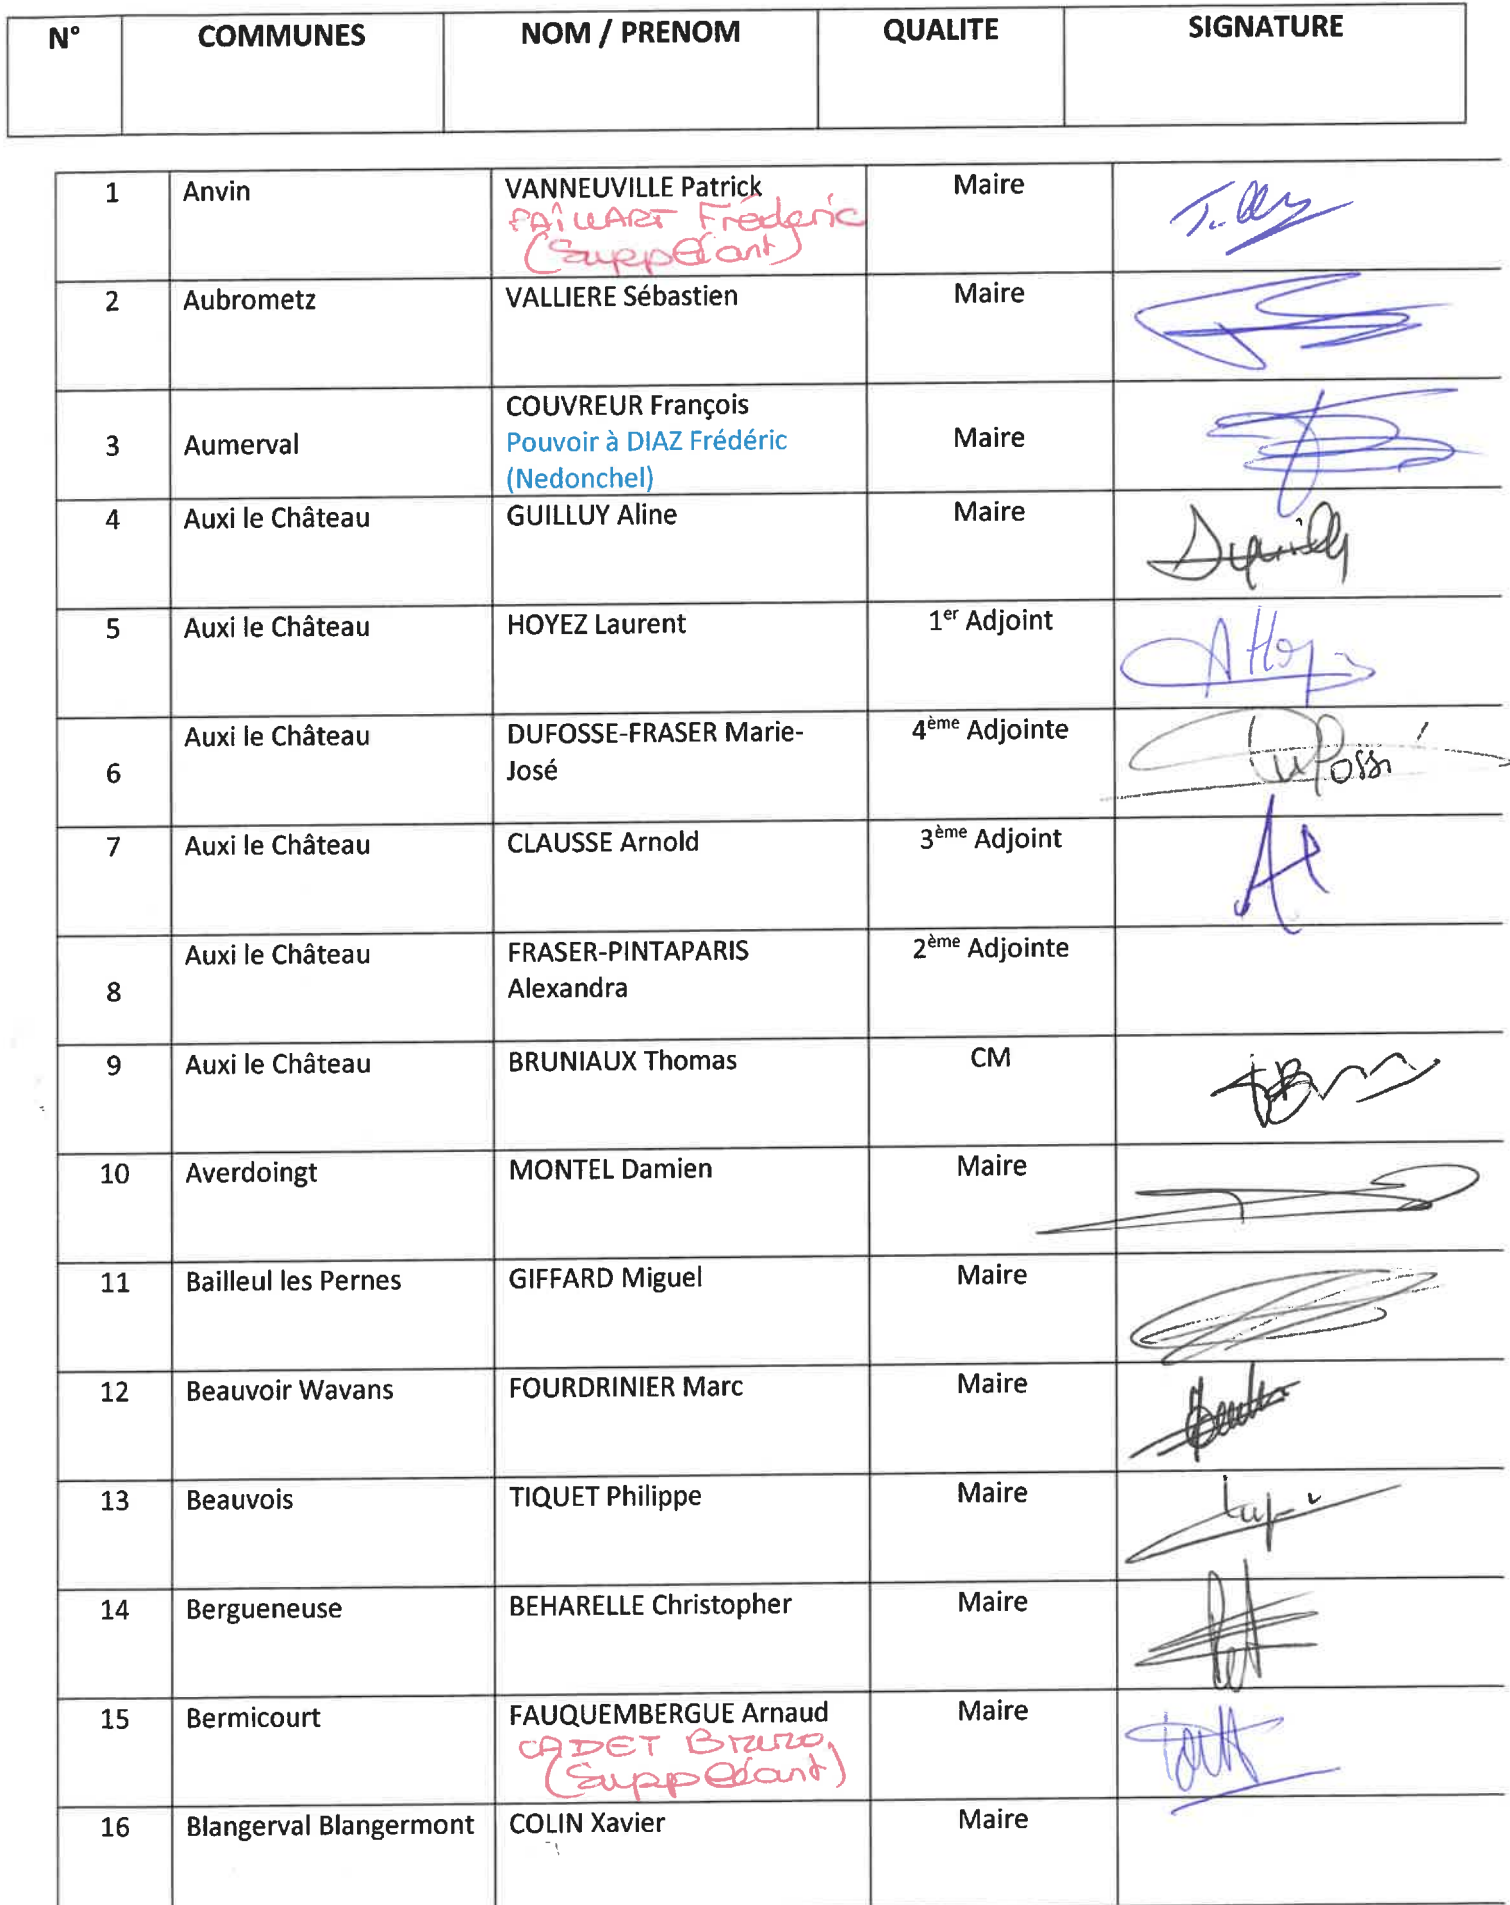 N° COMMUNES NOM / PRENOM QUALITE SIGNATURE
1 Anvin VANNEUVILLE Patrick Maire
Fréderic
(Suppléant)
2 Aubrometz VALLIERE Sébastien Maire
COUVREUR François
3 Aumerval Pouvoir à DIAZ Frédéric Maire
(Nedonchel)
4 Auxi le Château GUILLUY Aline Maire
5 Auxi le Château HOYEZ Laurent 1er Adjoint
Auxi le Château DUFOSSE-FRASER Marie- 4ème Adjointe
6 José
7 Auxi le Château CLAUSSE Arnold 3ème Adjoint
Auxi le Château FRASER-PINTAPARIS 2ème Adjointe
8 Alexandra
9 Auxi le Château BRUNIAUX Thomas CM
10 Averdoingt MONTEL Damien Maire
11 Bailleul les Pernes GIFFARD Miguel Maire
12 Beauvoir Wavans FOURDRINIER Marc Maire
13 Beauvois TIQUET Philippe Maire
14 Bergueneuse BEHARELLE Christopher Maire
15 Bermicourt FAUQUEMBERGUE Arnaud Maire
CADET Bruno
(Suppléant)
16 Blangerval Blangermont COLIN Xavier Maire